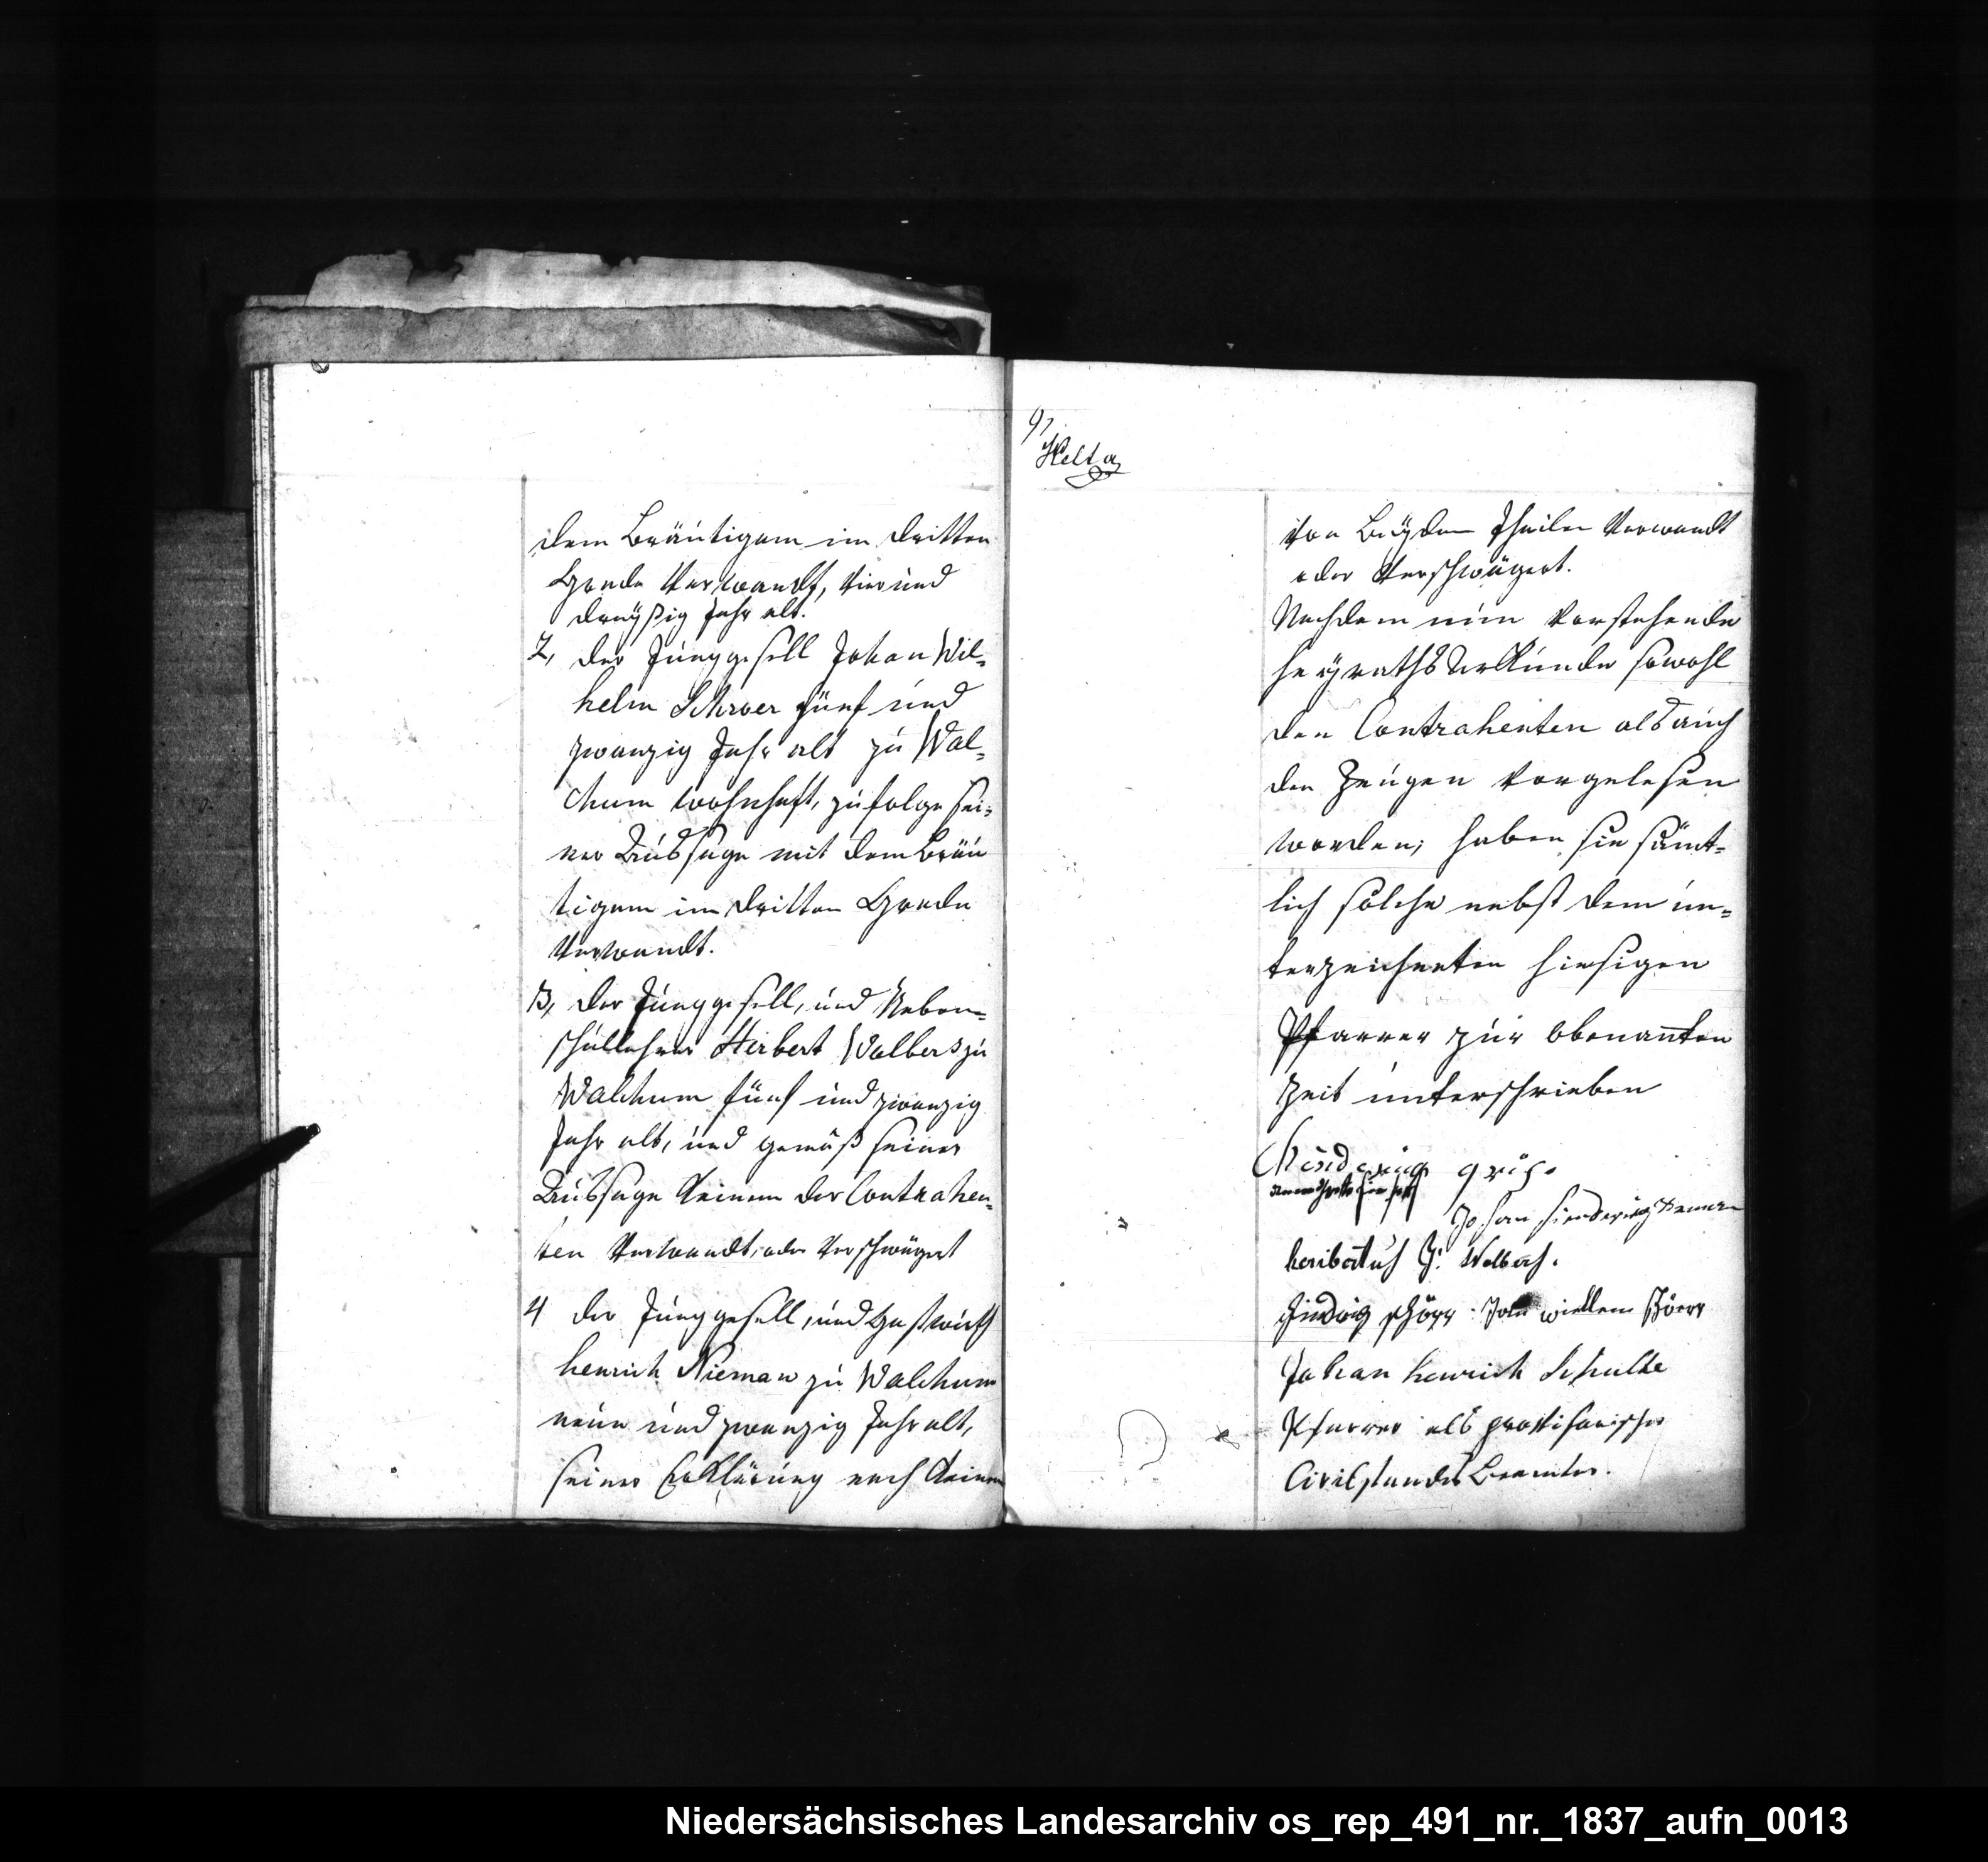 dem Bräutigam im dritten
Grade Verwandt, vier und
dreyßig Jahr alt.
2, der Junggesell Johan Wil=
helm Schroer fünf und
zwanzig Jahr alt zu Wal=
chum wohnhaft, zufolge sei=
ner Aussage mit dem Bräu
tigam im dritten Grade
Verwandt.
3, der Junggesell, und Neben=
schullehrer Herbert Walbers zu
Walchum fünf und zwanzig
Jahr alt, und gemäß seiner
Aussage keinem der Contrahen=
ten Verwandt, oder Verschwägert
4 der Junggesell, und Gastwirth
henrich Nieman zu Walchum
neun und zwanzig Jahr alt,
seiner Erklärung nach keinem
9,
von Beyden Theilen Verwandt
oder Verschwägert.
Nachdem nun vorstehende
heyraths Urkunde sowohl
den Contrahenten als auch
den Zeugen vorgelesen
worden; haben sie sämt=
lich solche nebst dem un=
terzeichneten hiesigen
Pfarrer zur obenanten
Zeit unterschrieben
Johan
Walbers.
Jan willem
Johan henrich Schulte
Pfarrer als provisorischer
Civilstandes Beamter.
Niedersächsisches Landesarchiv os_rep_491_nr._1837_aufn_0013